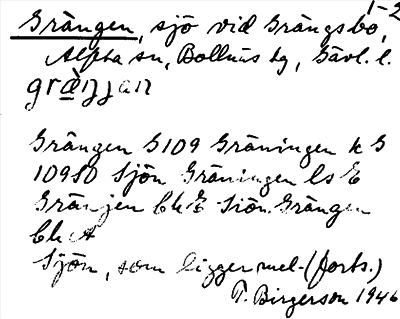 1-2
Grängen, sjö vid Grängsbo,
Alpha sn, Bollnäs tg, Gävl. l.
Grängen G109 Gräningen k G
10980 Sjön Gräningen ls E
Gränjen bk E Siön Grängen
bk A
Sjön, som ligger mel- (forts.)
T. Birgerson 1946